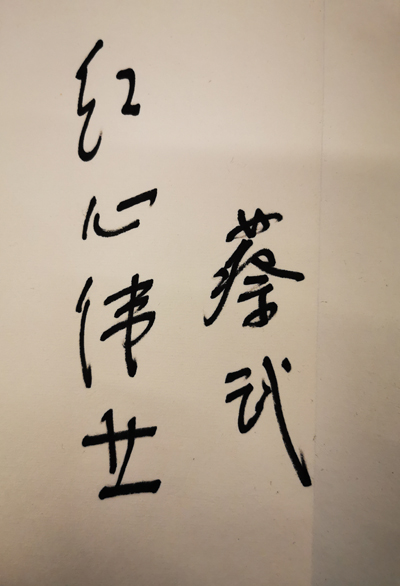 红心伟世
蔡武